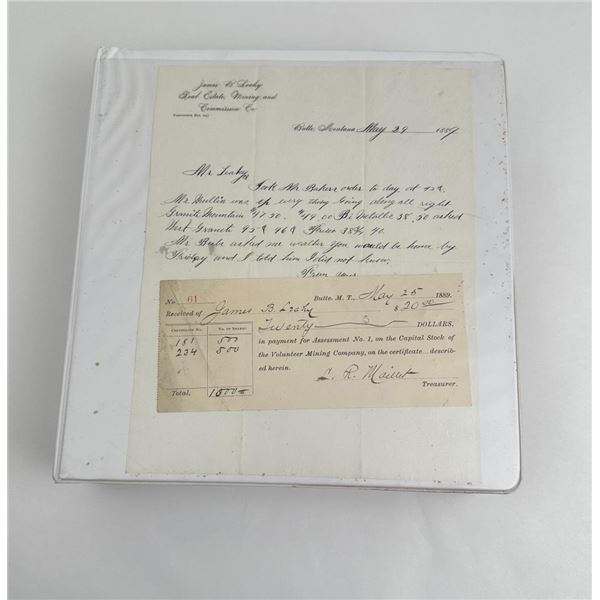 James B. Leahy
Real Estate, Mining and
Commission Co
Butte, Montana May 29 1889
Mr Leahy
Took Mr Bakers order to day at
Mr Mullin was up every thing going along all right
Granite Mountain $47.50. $49.00 Bi Metallic 38.50 asked
West Granite 95¢ 96¢ 38¾ 40.
Mr asked me weather you would be home by
Friday and I told him I did not know.
No. 61 Butte, M. T., May 25 1889.
Received of James B. Leahy $20.00
Twenty DOLLARS,
Certificate No. No. of Shares.
in payment for Assessment No. 1, on the Capital Stock of
181 500
the Volunteer Mining Company, on the certificate describ-
234 500
ed herein.
L. R. Maillet
Total, 1000
Treasurer.